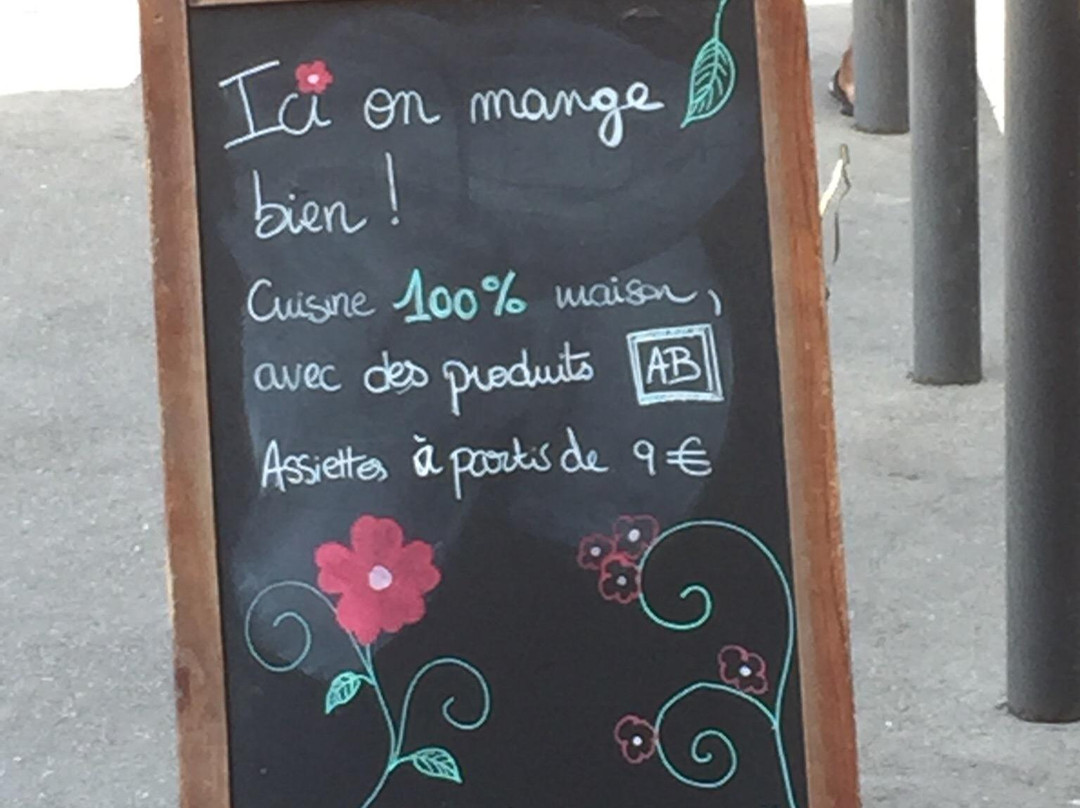 Ici on mange
bien !
Cuisine 100% maison,
avec des produits AB
Assiettes à partis de 9€